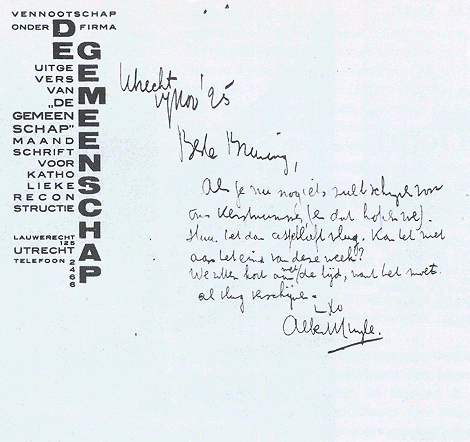 VENNOOTSCHAP
ONDER FIRMA
DE GEMEENSCHAP
UITGE
VERS
VAN
„DE
GEMEEN
SCHAP"
MAAND
SCHRIFT
VOOR
KATHO
LIEKE
RECON
STRUCTIE
LAUWERECHT
125
UTRECHT
TELEFOON 2466
Utrecht
Nov '25
Beste Bruning,
Als je nu nog iets wilt schrijven voor
ons Kerstnummer (en dat hopen we).
Stuur het dan astublieft vlug. Kan het niet
aan het eind van deze week?
We zitten kort over de tijd, want het moet
al vlug verschijnen.
Albert Kuyle.